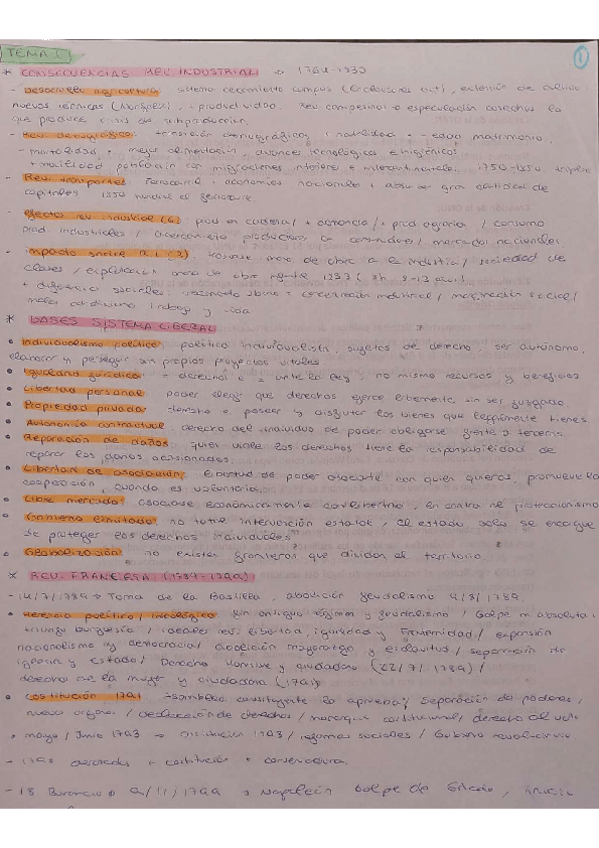 TEMA I
①
* CONSECUENCIAS REV. INDUSTRIAL → 1760-1830
- Desarrollo agricultura: sistema cercamiento campos (Enclousures act), extensión de cultivo
nuevas técnicas, + productividad. Rev campesina o especulación cosechas lo
que produce crisis de subproducción.
- Rev. demográfica: transición demográfica, natalidad + - edad matrimonio.
- mortalidad + mejor alimentación avances tecnológicos e higiénicos
+ movilidad población con migraciones interiores e internacionales. 1750-1850
- Rev. transportes: ferrocarril + economías nacionales + absorber gran cantidad de
capitales 1850 mundial el ferrocarril.
- efectos rev industrial (6): prod en cadena / + ganancia / + prod agraria / consumo
prod. industriales / acercamiento productores a consumidores / mercados nacionales.
- impacto social: mano de obra a la industria / sociedad de
clases / explotación mano de obra 1833 (8h 9-13 años)
+ diferencia sociales / concentración industrial / marginación social /
malas condiciones trabajo y vida
* BASES SISTEMA LIBERAL
• individualismo político: política individualista, sujetos de derecho, ser autónomo,
elaborar y perseguir sus propios proyectos vitales
• Igualdad jurídica: = derechos e = ante la ley, no mismo recursos y beneficios
• Libertad personal: poder elegir que derechos ejerce libremente sin ser juzgado
• Propiedad privada: derecho a poseer y disfrutar los bienes que legítimamente tienes.
• Autonomía contractual: derecho del individuo de poder obligarse frente a terceros.
• Reparación de daños: quien viole los derechos tiene la responsabilidad de
reparar los daños ocasionados.
• Libertad de asociación: libertad de poder asociarte con quien quieras, promueve la
cooperación, cuando es voluntario.
• Libre mercado: asociarse económicamente con libertad, en contra del proteccionismo
• Gobierno limitado: no total intervención estatal, el estado solo se encarga
de proteger los derechos individuales
• Globalización: no existen fronteras que dividan el territorio.
* REV. FRANCESA (1789-1799)
- 14/7/1789 → Toma de la Bastilla, abolición feudalismo 4/8/1789
• Herencia política / ideológica: fin antiguo régimen y feudalismo / Golpe m absoluta /
triunfo burguesía / ideales rev: libertad, igualdad y fraternidad / expansión
nacionalismo y democracia / abolición mayorazgo y esclavitud / separación de
iglesia y estado / Derecho hombre y ciudadano
derechos de la mujer y ciudadana (1791)
• Costitución 1791: Asamblea constituyente la aprueba; separación de poderes /
nuevo / declaración de derechos / monarquía constitucional / derecho al voto
• mayo / Junio 1793 → Constitución 1793 / reformas sociales / Gobierno revolucionario
- 1795 + constitución + conservadora.
- 18 Brumario o 9/11/1799 → Napoleón Golpe de Estado,